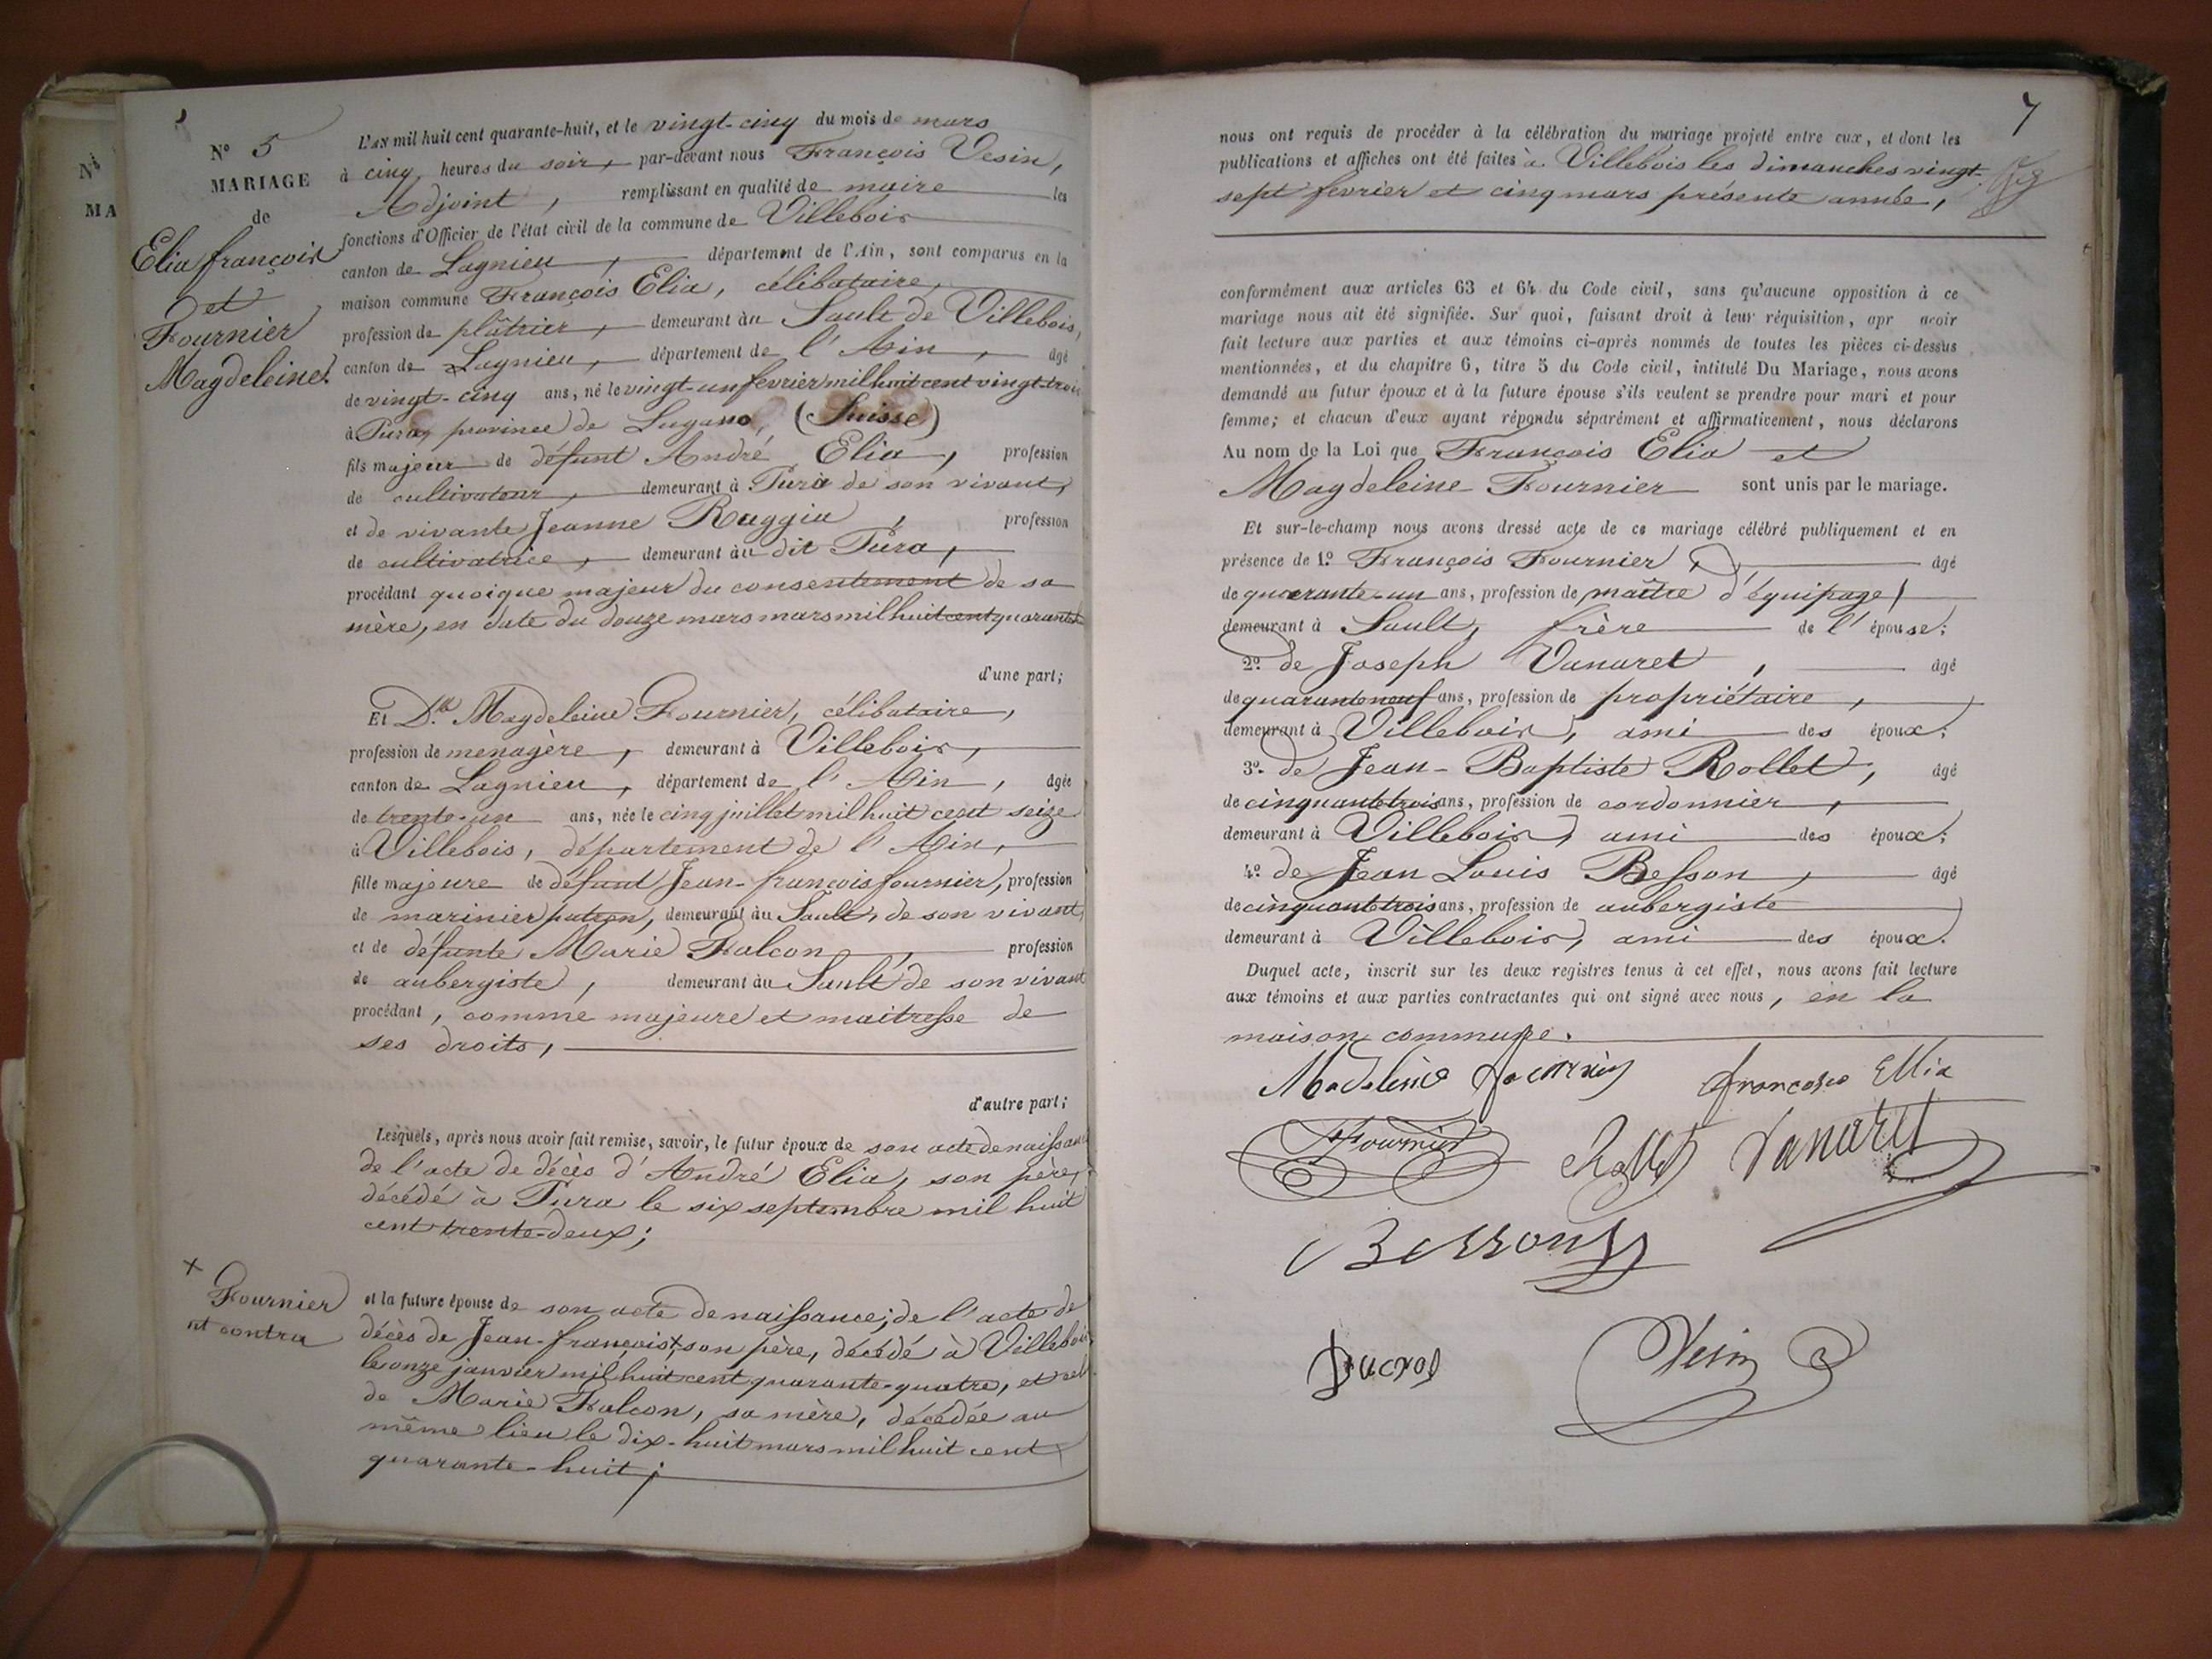 N° 5
MARIAGE
de
Elia françois
et
Fournier
Magdeleine.
L'an mil huit cent quarante-huit, et le vingt-cinq du mois de mars
à cinq heures du soir, par-devant nous François Vesin,
Adjoint, remplissant en qualité de maire les
fonctions d'Officier de l'état civil de la commune de Villebois
canton de Lagnieu, département de l'Ain, sont comparus en la
maison commune François Elia, célibataire,
profession de plâtrier, demeurant au Sault de Villebois,
canton de Lagnieu, département de l'Ain, âgé
de vingt-cinq ans, né le vingt-un fevrier mil huit cent vingt-trois
à Pura, province de Lugano, (Suisse)
fils majeur de défunt André Elia, profession
de cultivateur, demeurant à Pura de son vivant,
et de vivante Jeanne Ruggia, profession
de cultivatrice, demeurant au dit Pura,
procédant quoique majeur du consentement de sa
mère, en date du douze mars mars mil huit cent quarante
d'une part;
Et Dlle Magdeleine Fournier, célibataire,
profession de menagère, demeurant à Villebois,
canton de Lagnieu, département de l'Ain, âgée
de trente-un ans, née le cinq juillet mil huit cent seize
à Villebois, département de l'Ain,
fille majeure de défunt Jean-françois fournier, profession
de marinier patron, demeurant au Sault, de son vivant,
et de défunte Marie Falcon, profession
de aubergiste, demeurant au Sault de son vivant
procédant, comme majeure et maitresse de
ses droits,
d'autre part;
Lesquels, après nous avoir fait remise, savoir, le futur époux de son acte de naissance
de l'acte de décès d'André Elia, son père,
décédé à Pura le six septembre mil huit
cent trente-deux;
+
Fournier
et la future épouse de son acte de naissance; de l'acte de
décès de Jean-françois +, son père, décédé à Villebois
le onze janvier mil huit cent quarante-quatre, et celui
de Marie Falcon, sa mère, décédée au
même lieu le dix-huit mars mil huit cent
quarante-huit;
7
nous ont requis de procéder à la célébration du mariage projeté entre eux, et dont les
publications et affiches ont été faites à Villebois les dimanches vingt-
sept fevrier et cinq mars présente année,
conformément aux articles 63 et 64 du Code civil, sans qu'aucune opposition à ce
mariage nous ait été signifiée. Sur quoi, faisant droit à leur réquisition, apr avoir
fait lecture aux parties et aux témoins ci-après nommés de toutes les pièces ci-dessus
mentionnées, et du chapitre 6, titre 5 du Code civil, intitulé Du Mariage, nous avons
demandé au futur époux et à la future épouse s'ils veulent se prendre pour mari et pour
femme; et chacun d'eux ayant répondu séparément et affirmativement, nous déclarons
Au nom de la Loi que François Elia et
Magdeleine Fournier sont unis par le mariage.
Et sur-le-champ nous avons dressé acte de ce mariage célébré publiquement et en
présence de 1º François Fournier, âgé
de quarante-un ans, profession de maître d'équipage,
demeurant à Sault, frère de l'épouse;
2º de Joseph Vanaret, âgé
de quarante neuf ans, profession de propriétaire,
demeurant à Villebois, ami des époux;
3º de Jean-Baptiste Rollet, âgé
de cinquante trois ans, profession de cordonnier,
demeurant à Villebois, ami des époux;
4º de Jean Louis Besson, âgé
de cinquante trois ans, profession de aubergiste
demeurant à Villebois, ami des époux.
Duquel acte, inscrit sur les deux registres tenus à cet effet, nous avons fait lecture
aux témoins et aux parties contractantes qui ont signé avec nous, en la
maison commune.
Madeleine françesco Ellia
Fournier Rollet Vanaret
Besson
Ducros Vesin